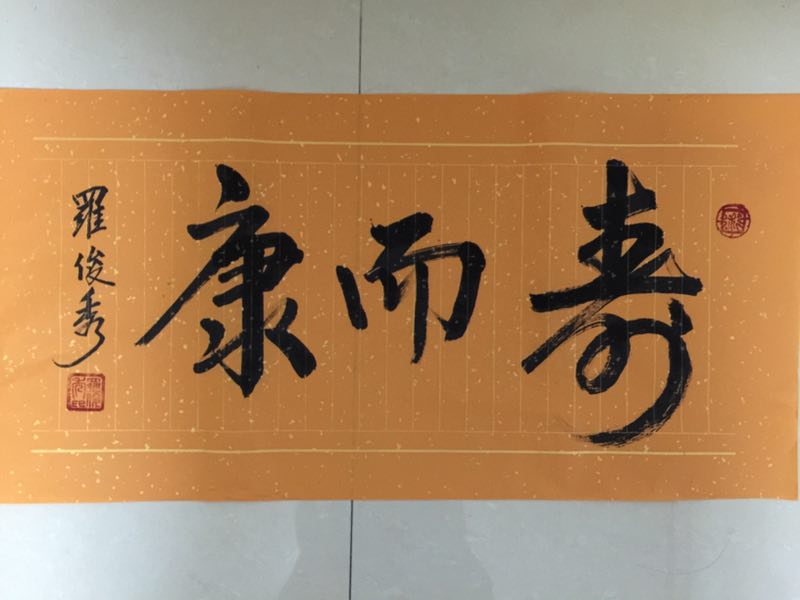 寿而康
羅俊秀